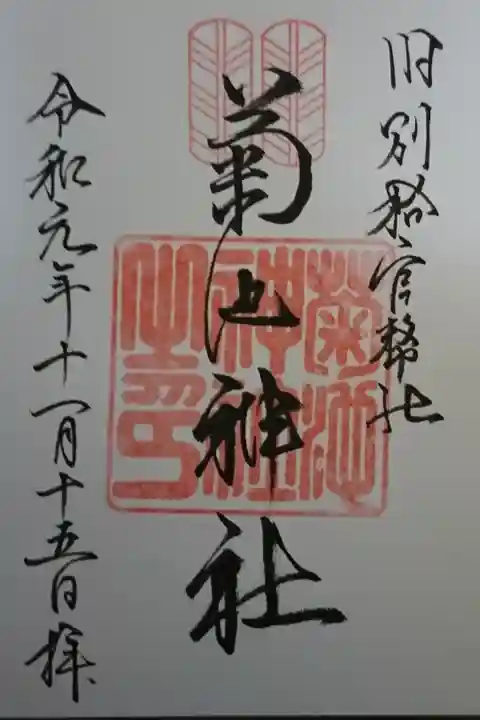 旧別格官幣社
菊池神社
菊池
神社
之印
令和元年十一月十五日拝